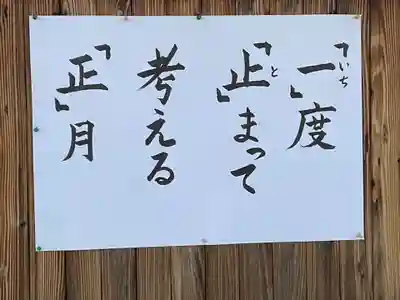 「一」度
「止」まって
考える
「正」月
いち
と